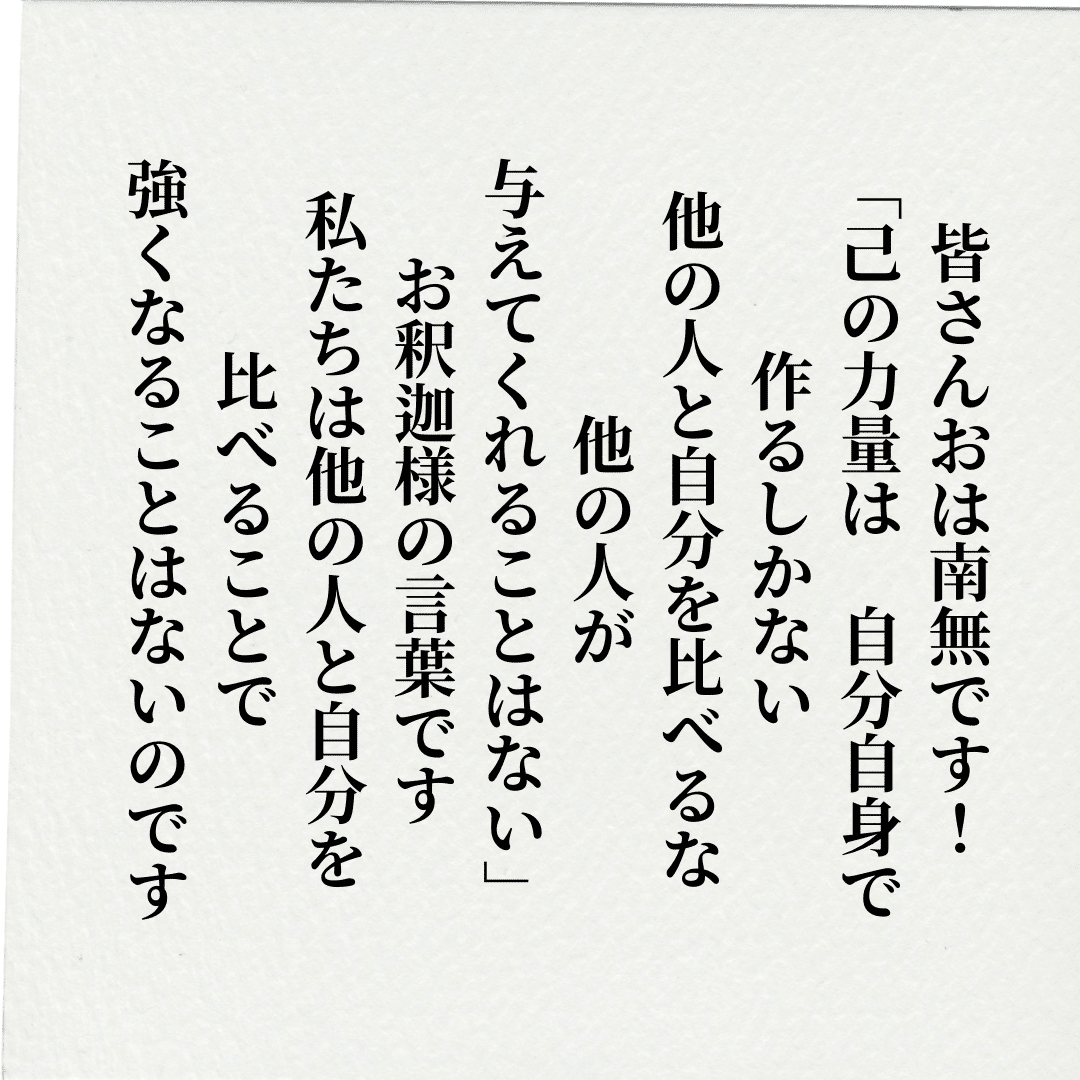 皆さんおは南無です！
「己の力量は　自分自身で
作るしかない
他の人と自分を比べるな
他の人が
与えてくれることはない」
お釈迦様の言葉です
私たちは他の人と自分を
比べることで
強くなることはないのです